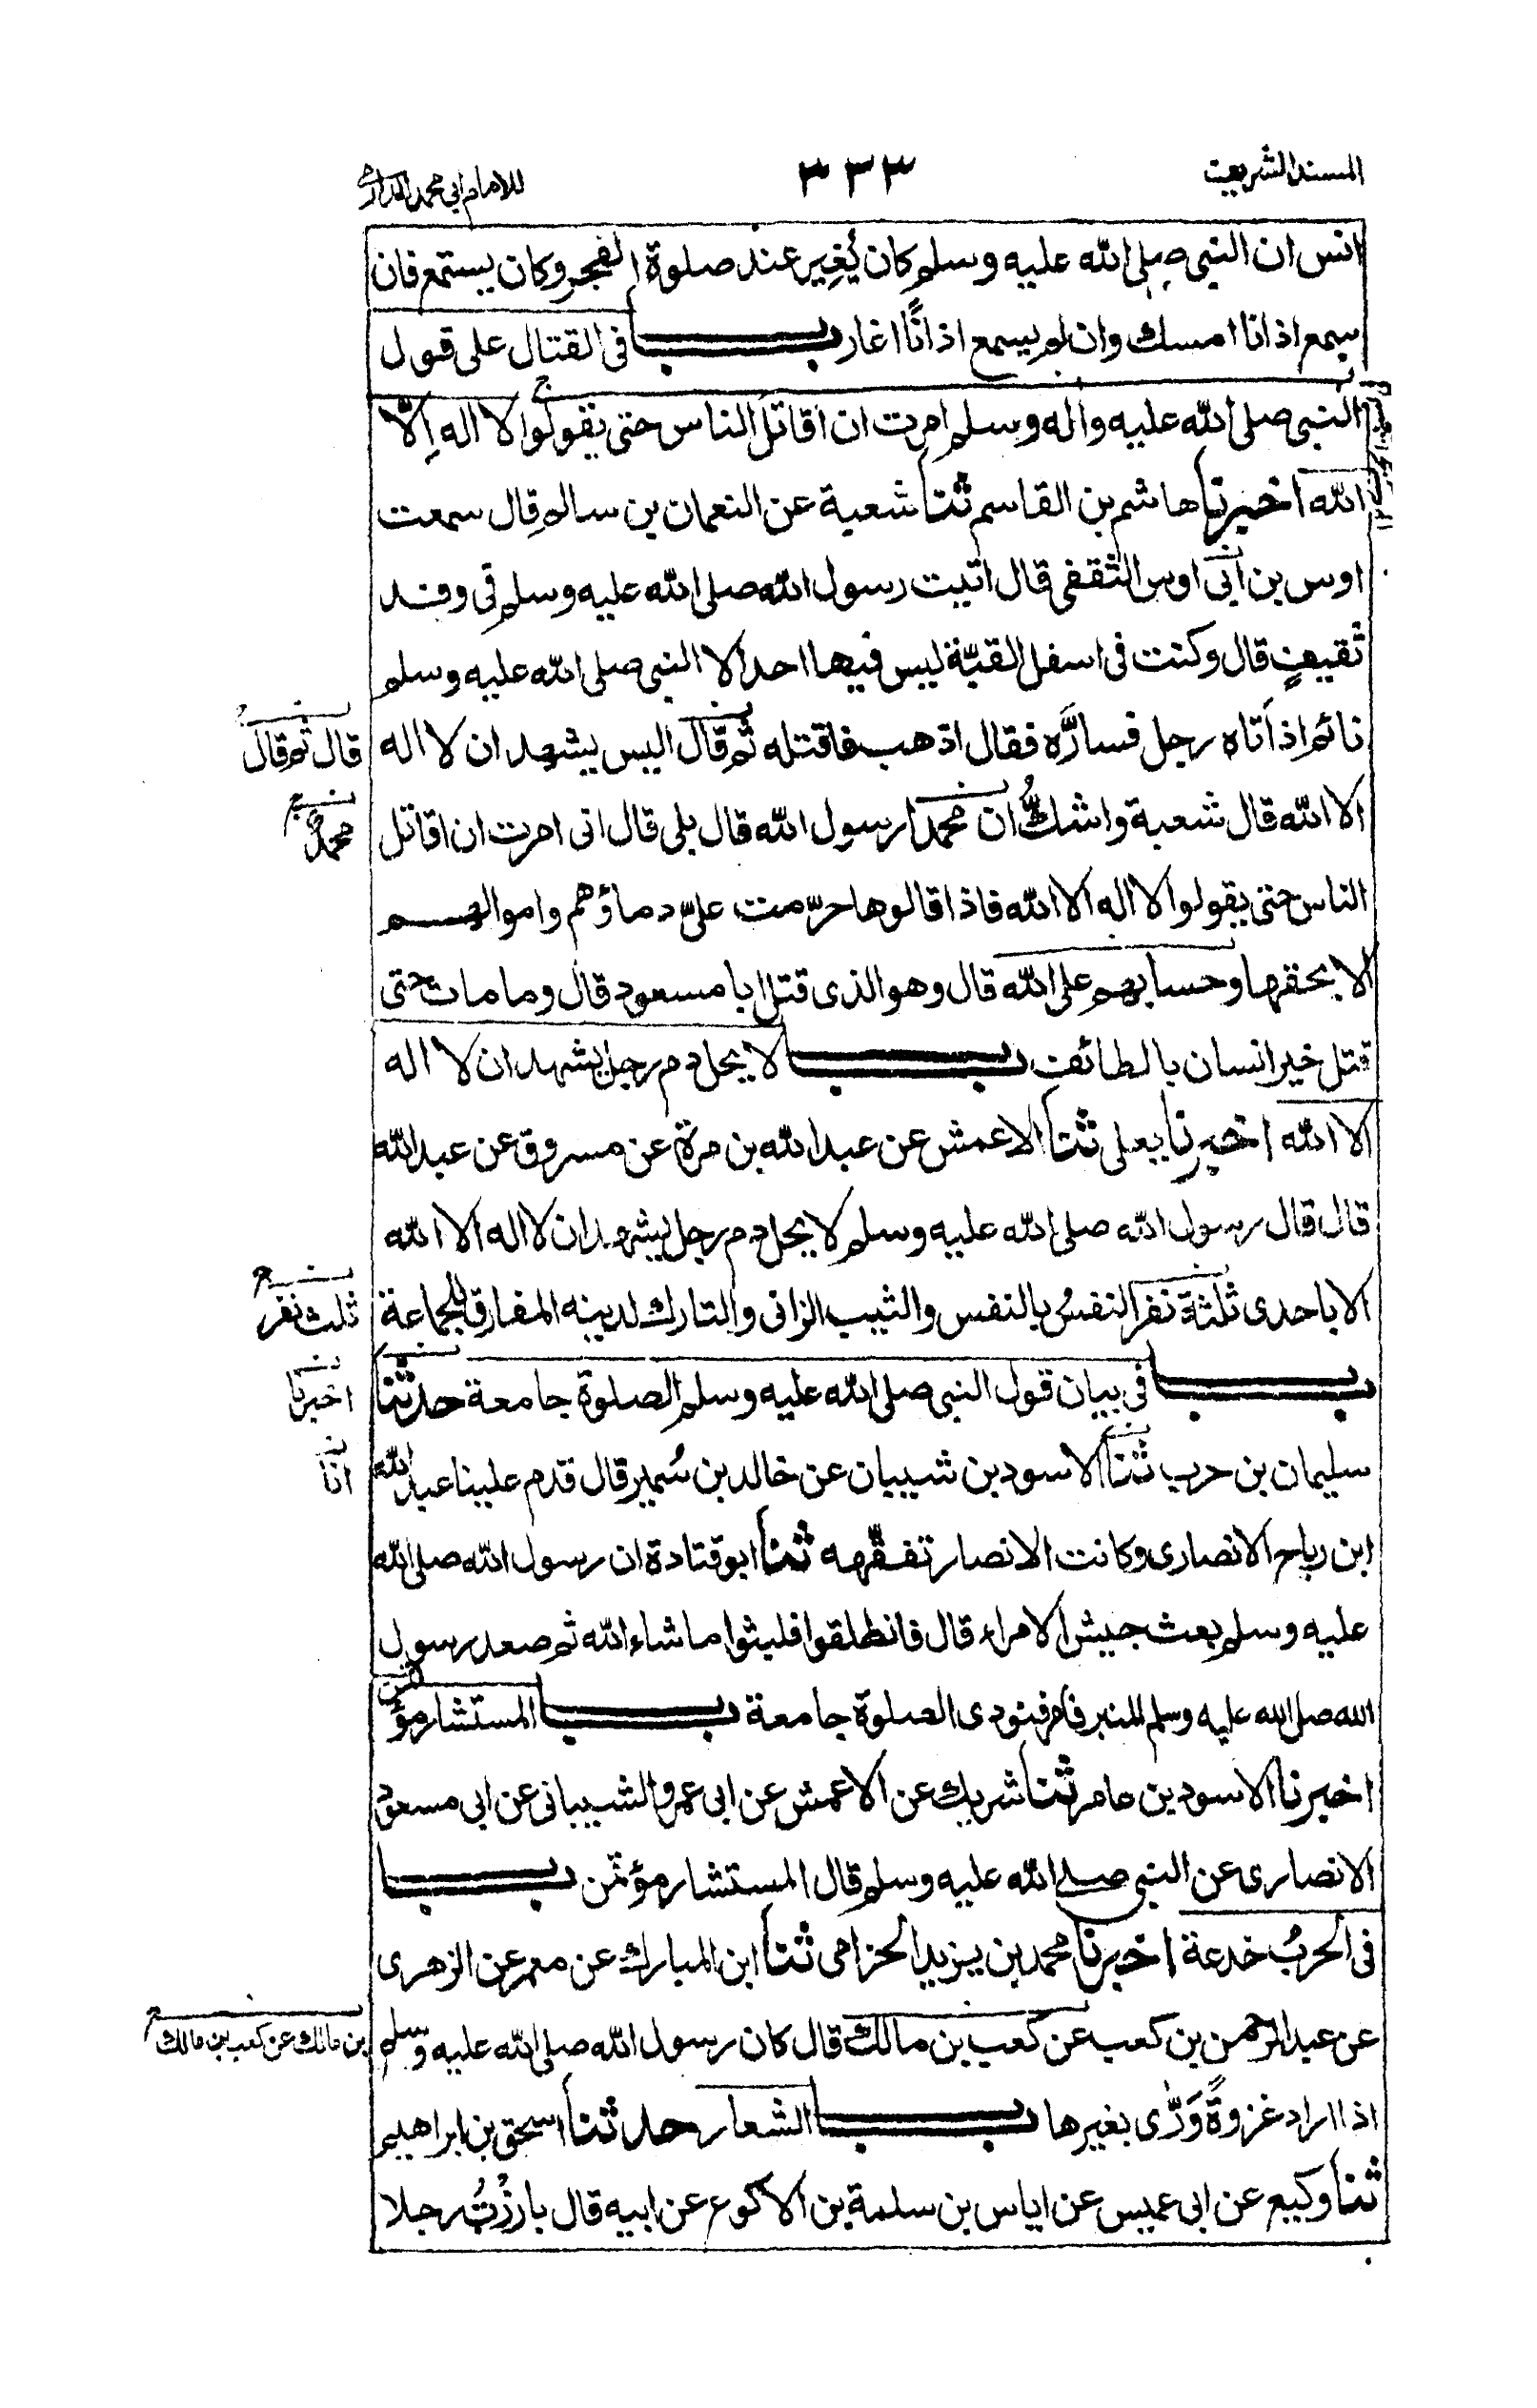 المسند الشريف
٣٣٣
للامام ابي محمد الدارمي
انس ان النبي صلى الله عليه وسلم كان يُغِير عند صلوة الفجر وكان يستمع فان
سمع اذانا امسك وان لم يسمع اذانًا اغار بــــاب في القتال على قول
النبي صلى الله عليه واله وسلم امرت ان اقاتل الناس حتى يقولوا لا اله اِلّا
الله اخبرنا هاشم بن القاسم ثنا شعبة عن النعمان بن سالم قال سمعت
اوس بن ابى اوس الثقفى قال اتيت رسول الله صلى الله عليه وسلم فى وفد
ثقيفٍ قال وكنت فى اسفل القبّة ليس فيها احد الا النبى صلى الله عليه وسلم
نائم اذ اَتاه رجل فسارَّه فقال اذهب فاقتله ثم قال اليس يشهد ان لا اله
قال ثم قال
الا الله قال شعبة واشكُّ ان محمدا رسول الله قال بلى قال انى امرت ان اقاتل
محمدٌ
الناس حتى يقولوا لا اله الا الله فاذا قالوها حرّمت علىّ دماؤهم واموالهم
الا بحقها وحسابهم على الله قال وهو الذى قتل ابا مسعود قال وما مات حتى
قتل خير انسان بالطائف بــــاب لا يحل دم رجل يشهد ان لا اله
الا الله اخبرنا يعلى ثنا الاعمش عن عبد الله بن مرة عن مسروق عن عبد الله
قال قال رسول الله صلى الله عليه وسلم لا يحل دم رجل يشهد ان لا اله الا الله
الا باحدى ثلثة نفر النفسُ بالنفس والثيب الزانى والتارك لدينه المفارق للجماعة
ثلث نفر
بــــاب فى بيان قول النبى صلى الله عليه وسلم الصلوة جامعة حدثنا
اخبرنا
سليمان بن حرب ثنا الاسود بن شيبان عن خالد بن سُمير قال قدم علينا عبد الله
انا
ابن رباح الانصارى وكانت الانصار تفقّهه ثنا ابو قتادة ان رسول الله صلى الله
عليه وسلم بعث جيش الامراء قال فانطلقوا فلبثوا ما شاء الله ثم صعد رسول
الله صلى الله عليه وسلم المنبر فامر فنودى الصلوة جامعة بــــاب المستشار مؤتمن
اخبرنا الاسود بن عامر ثنا شريك عن الاعمش عن ابى عمرو الشيبانى عن ابى مسعود
الانصارى عن النبى صلى الله عليه وسلم قال المستشار مؤتمن بــــاب
فى الحربُ خدعة اخبرنا محمد بن يزيد الحزامى ثنا ابن المبارك عن معمر عن الزهرى
عن عبد الرحمن بن كعب عن كعب بن مالك قال كان رسول الله صلى الله عليه وسلم
بن مالك عن كعب بن مالك
اذا اراد غزوةً وَرّٰى بغيرها بــــاب الشعار حدثنا اسحق بن ابراهيم
ثنا وكيع عن ابى عميس عن اياس بن سلمة بن الاكوع عن ابيه قال بارزْتُ رجلا